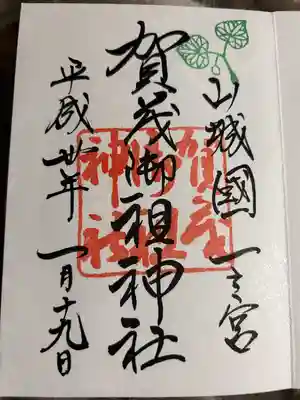 山城國一之宮
賀茂御祖神社
平成卅年
一月十九日
賀茂
御祖
神社